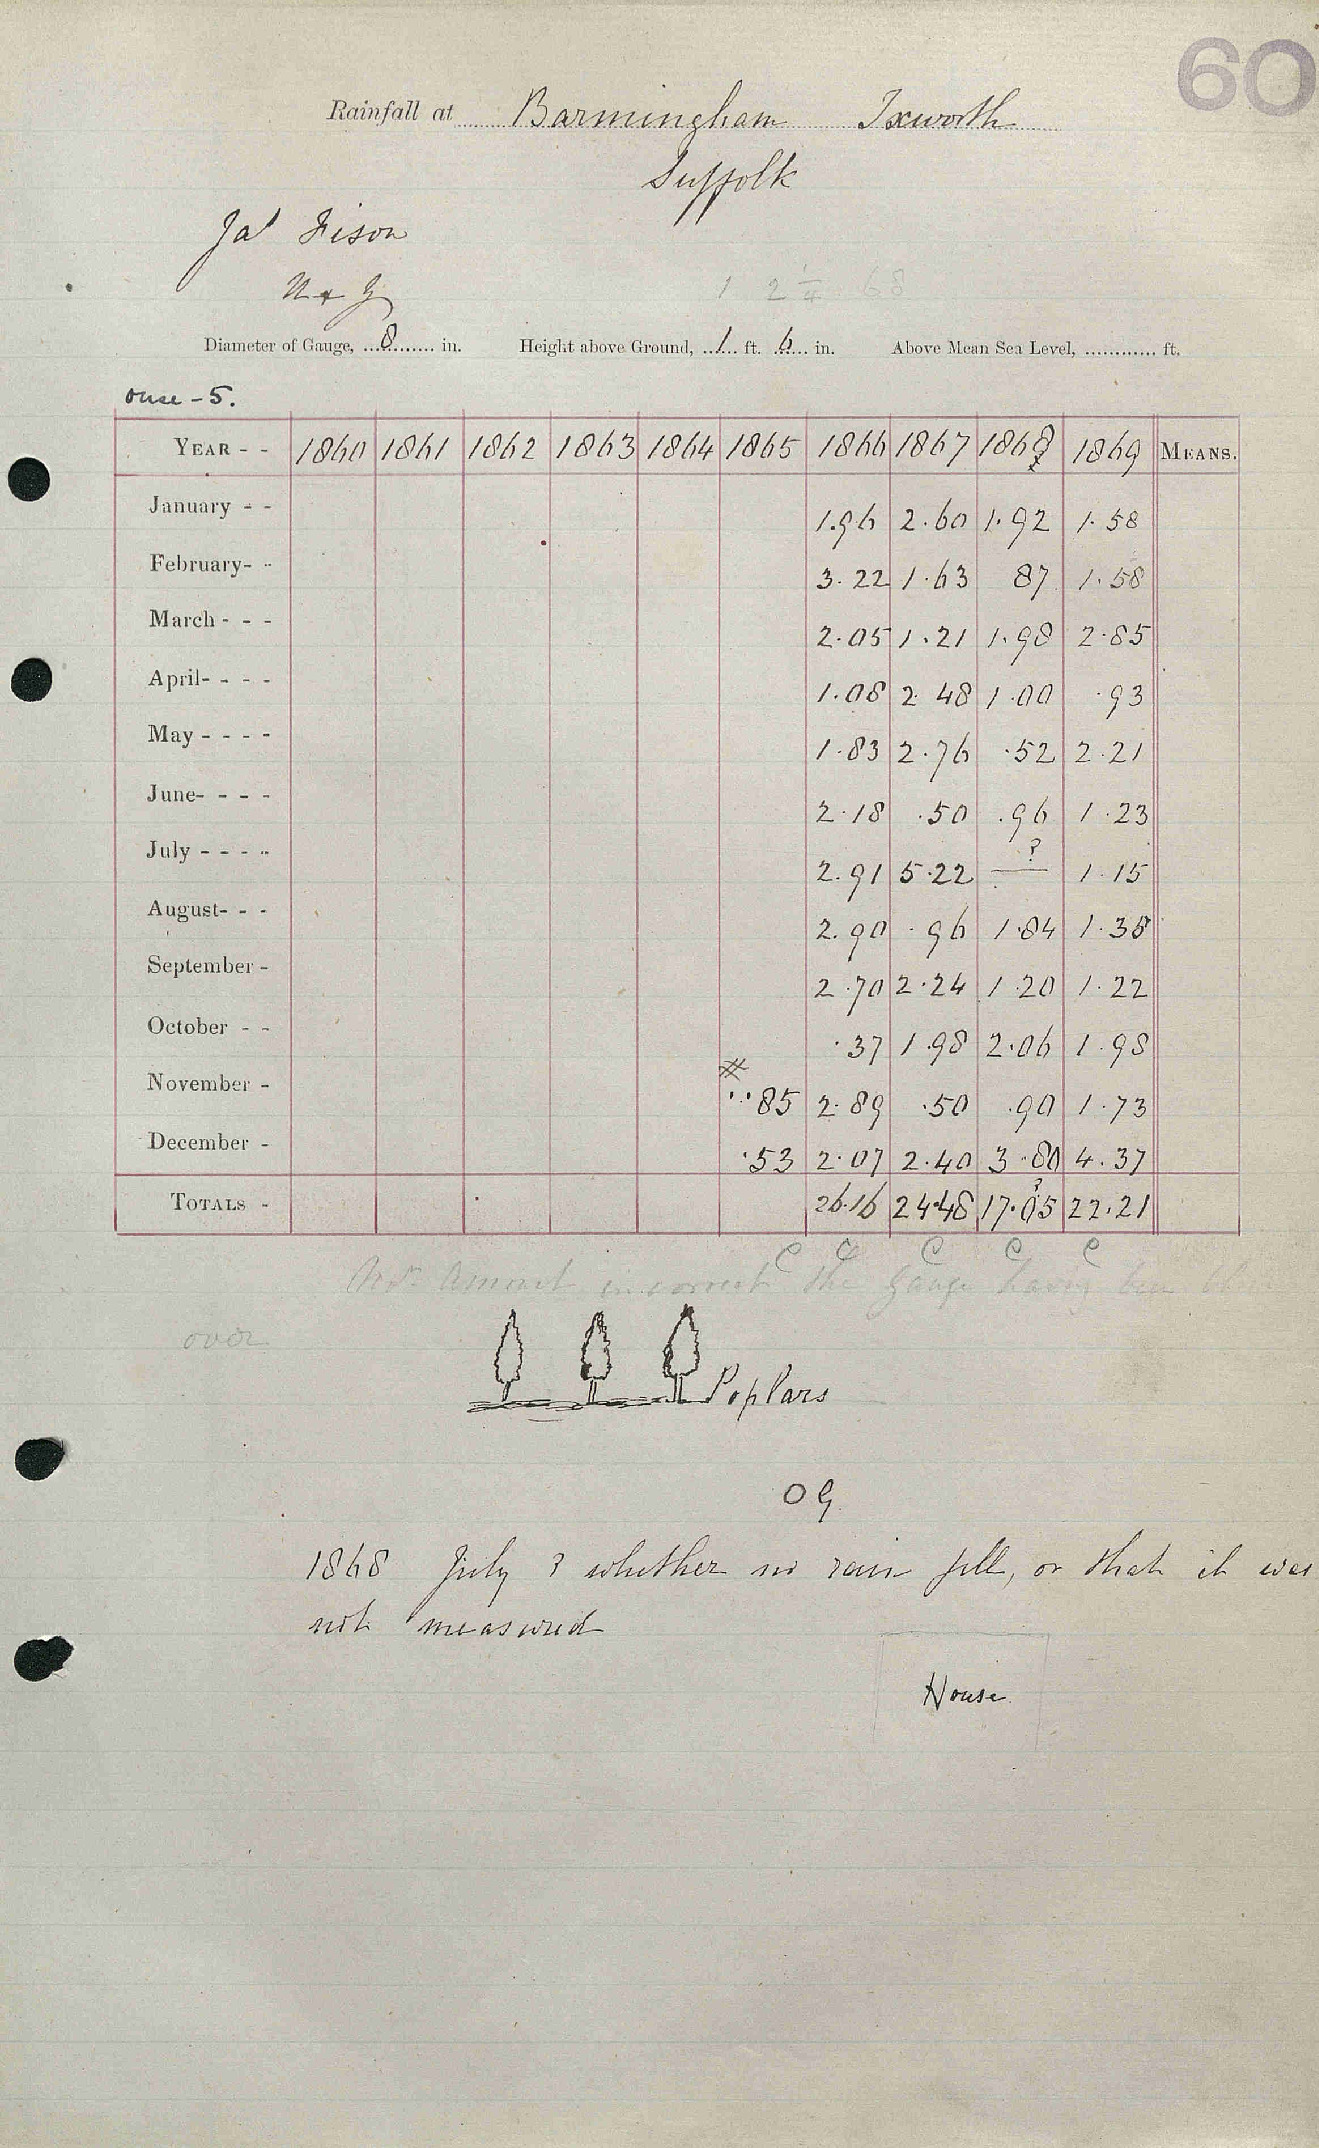 60
Rainfall at Barmingham Ixworth
Suffolk
Jas Fison
1 2 1/4 68
Diameter of Gauge, 8 in. Height above Ground, 1 ft. 6 in. Above Mean Sea Level, ............ ft.
Ouse - 5.
YEAR - - 1860 1861 1862 1863 1864 1865 1866 1867 1868 1869 MEANS.
January - - 1.96 2.60 1.92 1.58
February- - 3.22 1.63 87 1.58
March - - - 2.05 1.21 1.98 2.85
April- - - - 1.08 2.48 1.00 .93
May - - - - 1.83 2.76 .52 2.21
June- - - - 2.18 .50 .96 1.23
July - - - - 2.91 5.22 —? 1.15
August- - - 2.90 .96 1.84 1.38
September - 2.70 2.24 1.20 1.22
October - - .37 1.98 2.06 1.98
November - .85 2.89 .50 .90 1.73
December - .53 2.07 2.40 3.80 4.37
TOTALS - 26.16 24.48 17.05? 22.21
C C C C C
Novr. Amount incorrect the gauge having been
over
Poplars
O G
1868 July ? whether no rain fell, or that it was
not measured
House